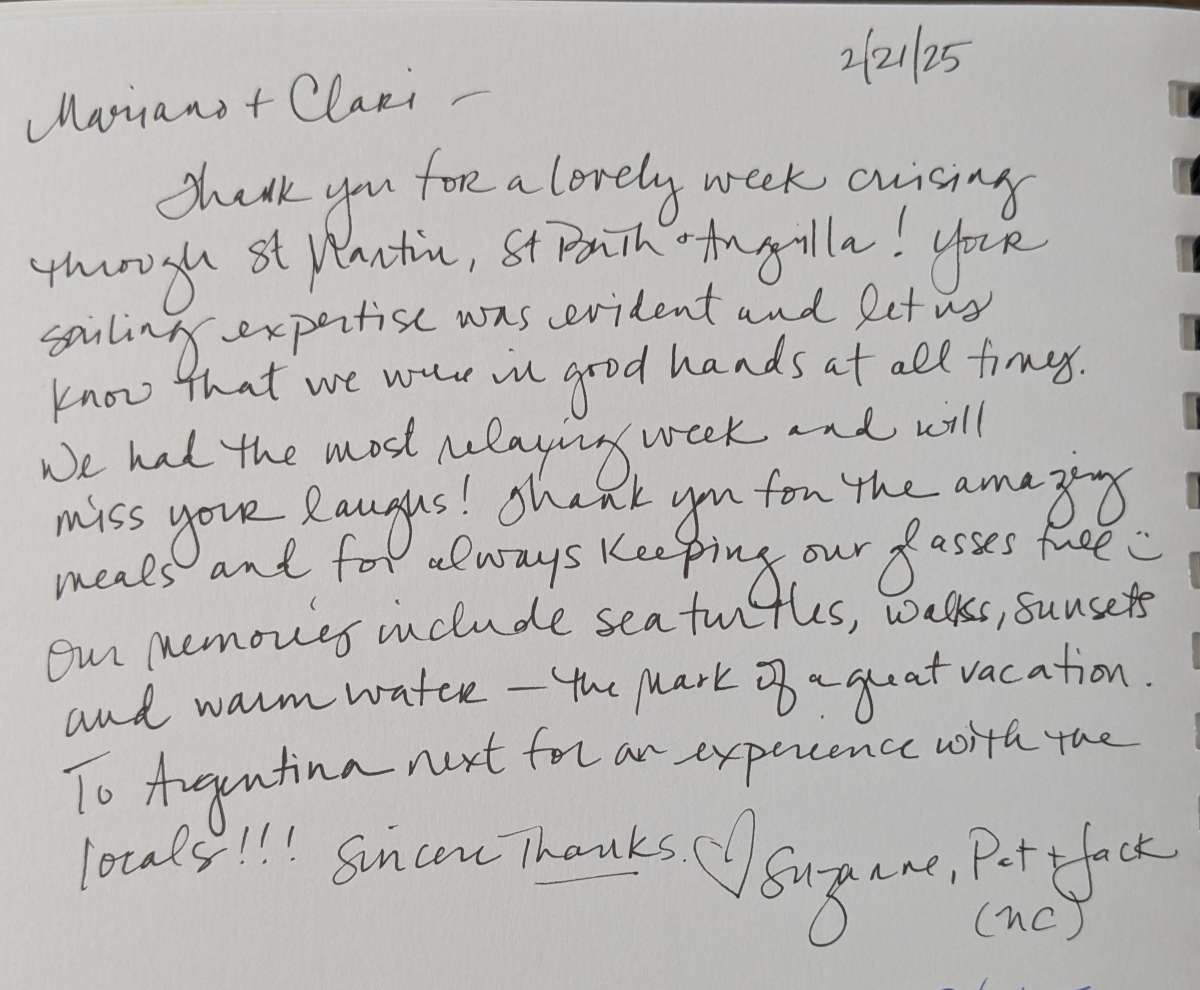 2/21/25
Mariano + Clari –
Thank you for a lovely week cruising
through St Martin, St Barth + Anguilla! Your
sailing expertise was evident and let us
know that we were in good hands at all times.
We had the most relaxing week and will
miss your laughs! Thank you for the amazing
meals and for always keeping our glasses full :)
Our memories include sea turtles, walks, sunsets
and warm water – the mark of a great vacation.
To Argentina next for an experience with the
locals!!! Sincere Thanks. ♡ Suzanne, Pat + Jack
(NC)